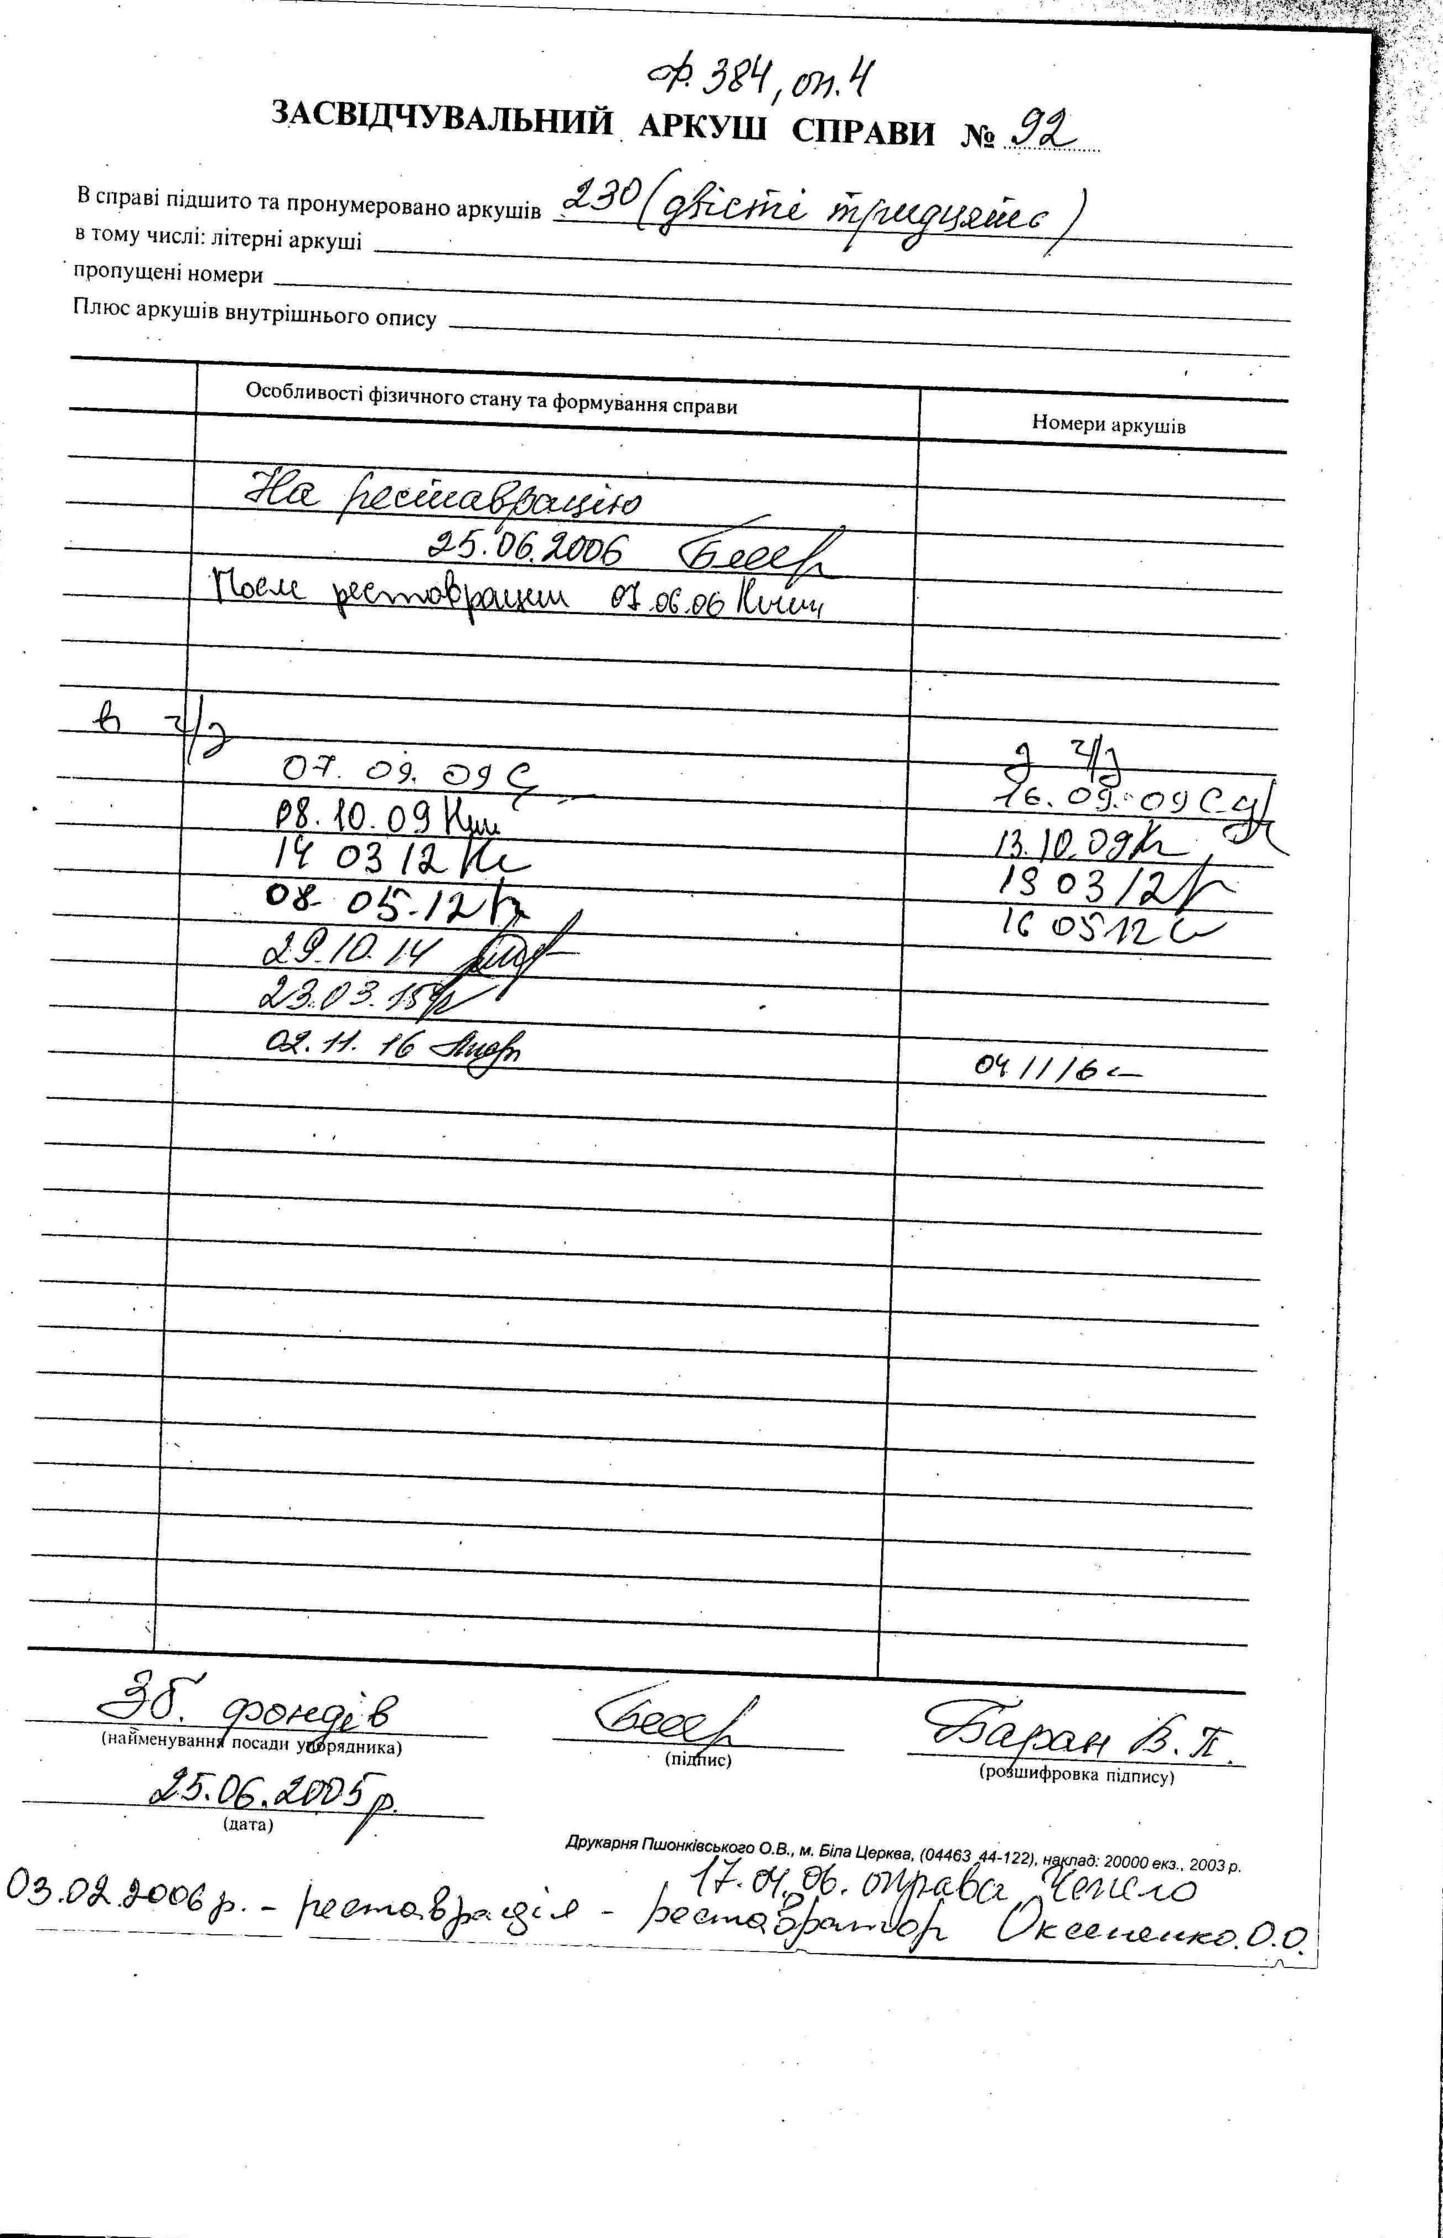 ф. 384, оп. 4
ЗАСВІДЧУВАЛЬНИЙ АРКУШ СПРАВИ № 92
В справі підшито та пронумеровано аркушів 230 (двісті тридцять)
в тому числі: літерні аркуші
пропущені номери
Плюс аркушів внутрішнього опису
Особливості фізичного стану та формування справи Номери аркушів
На реставрацію
25.06.2006
После реставрации 07.06.06
в ч/з з ч/з
07.09.09 16.09.09
08.10.09 13.10.09
14 03 12 19 03 12
08.05.12 16 05 12
29.10.14
23.03.15
02.11.16 04 11 16
Зб. фондів Баран В.П.
(найменування посади упорядника) (підпис) (розшифровка підпису)
25.06.2005 р.
(дата)
Друкарня Пшонківського О.В., м. Біла Церква, (04463 44-122), наклад: 20000 екз., 2003 р.
17.04.06. оправа
03.02.2006 р. - реставрація - реставратор Оксененко.О.О.